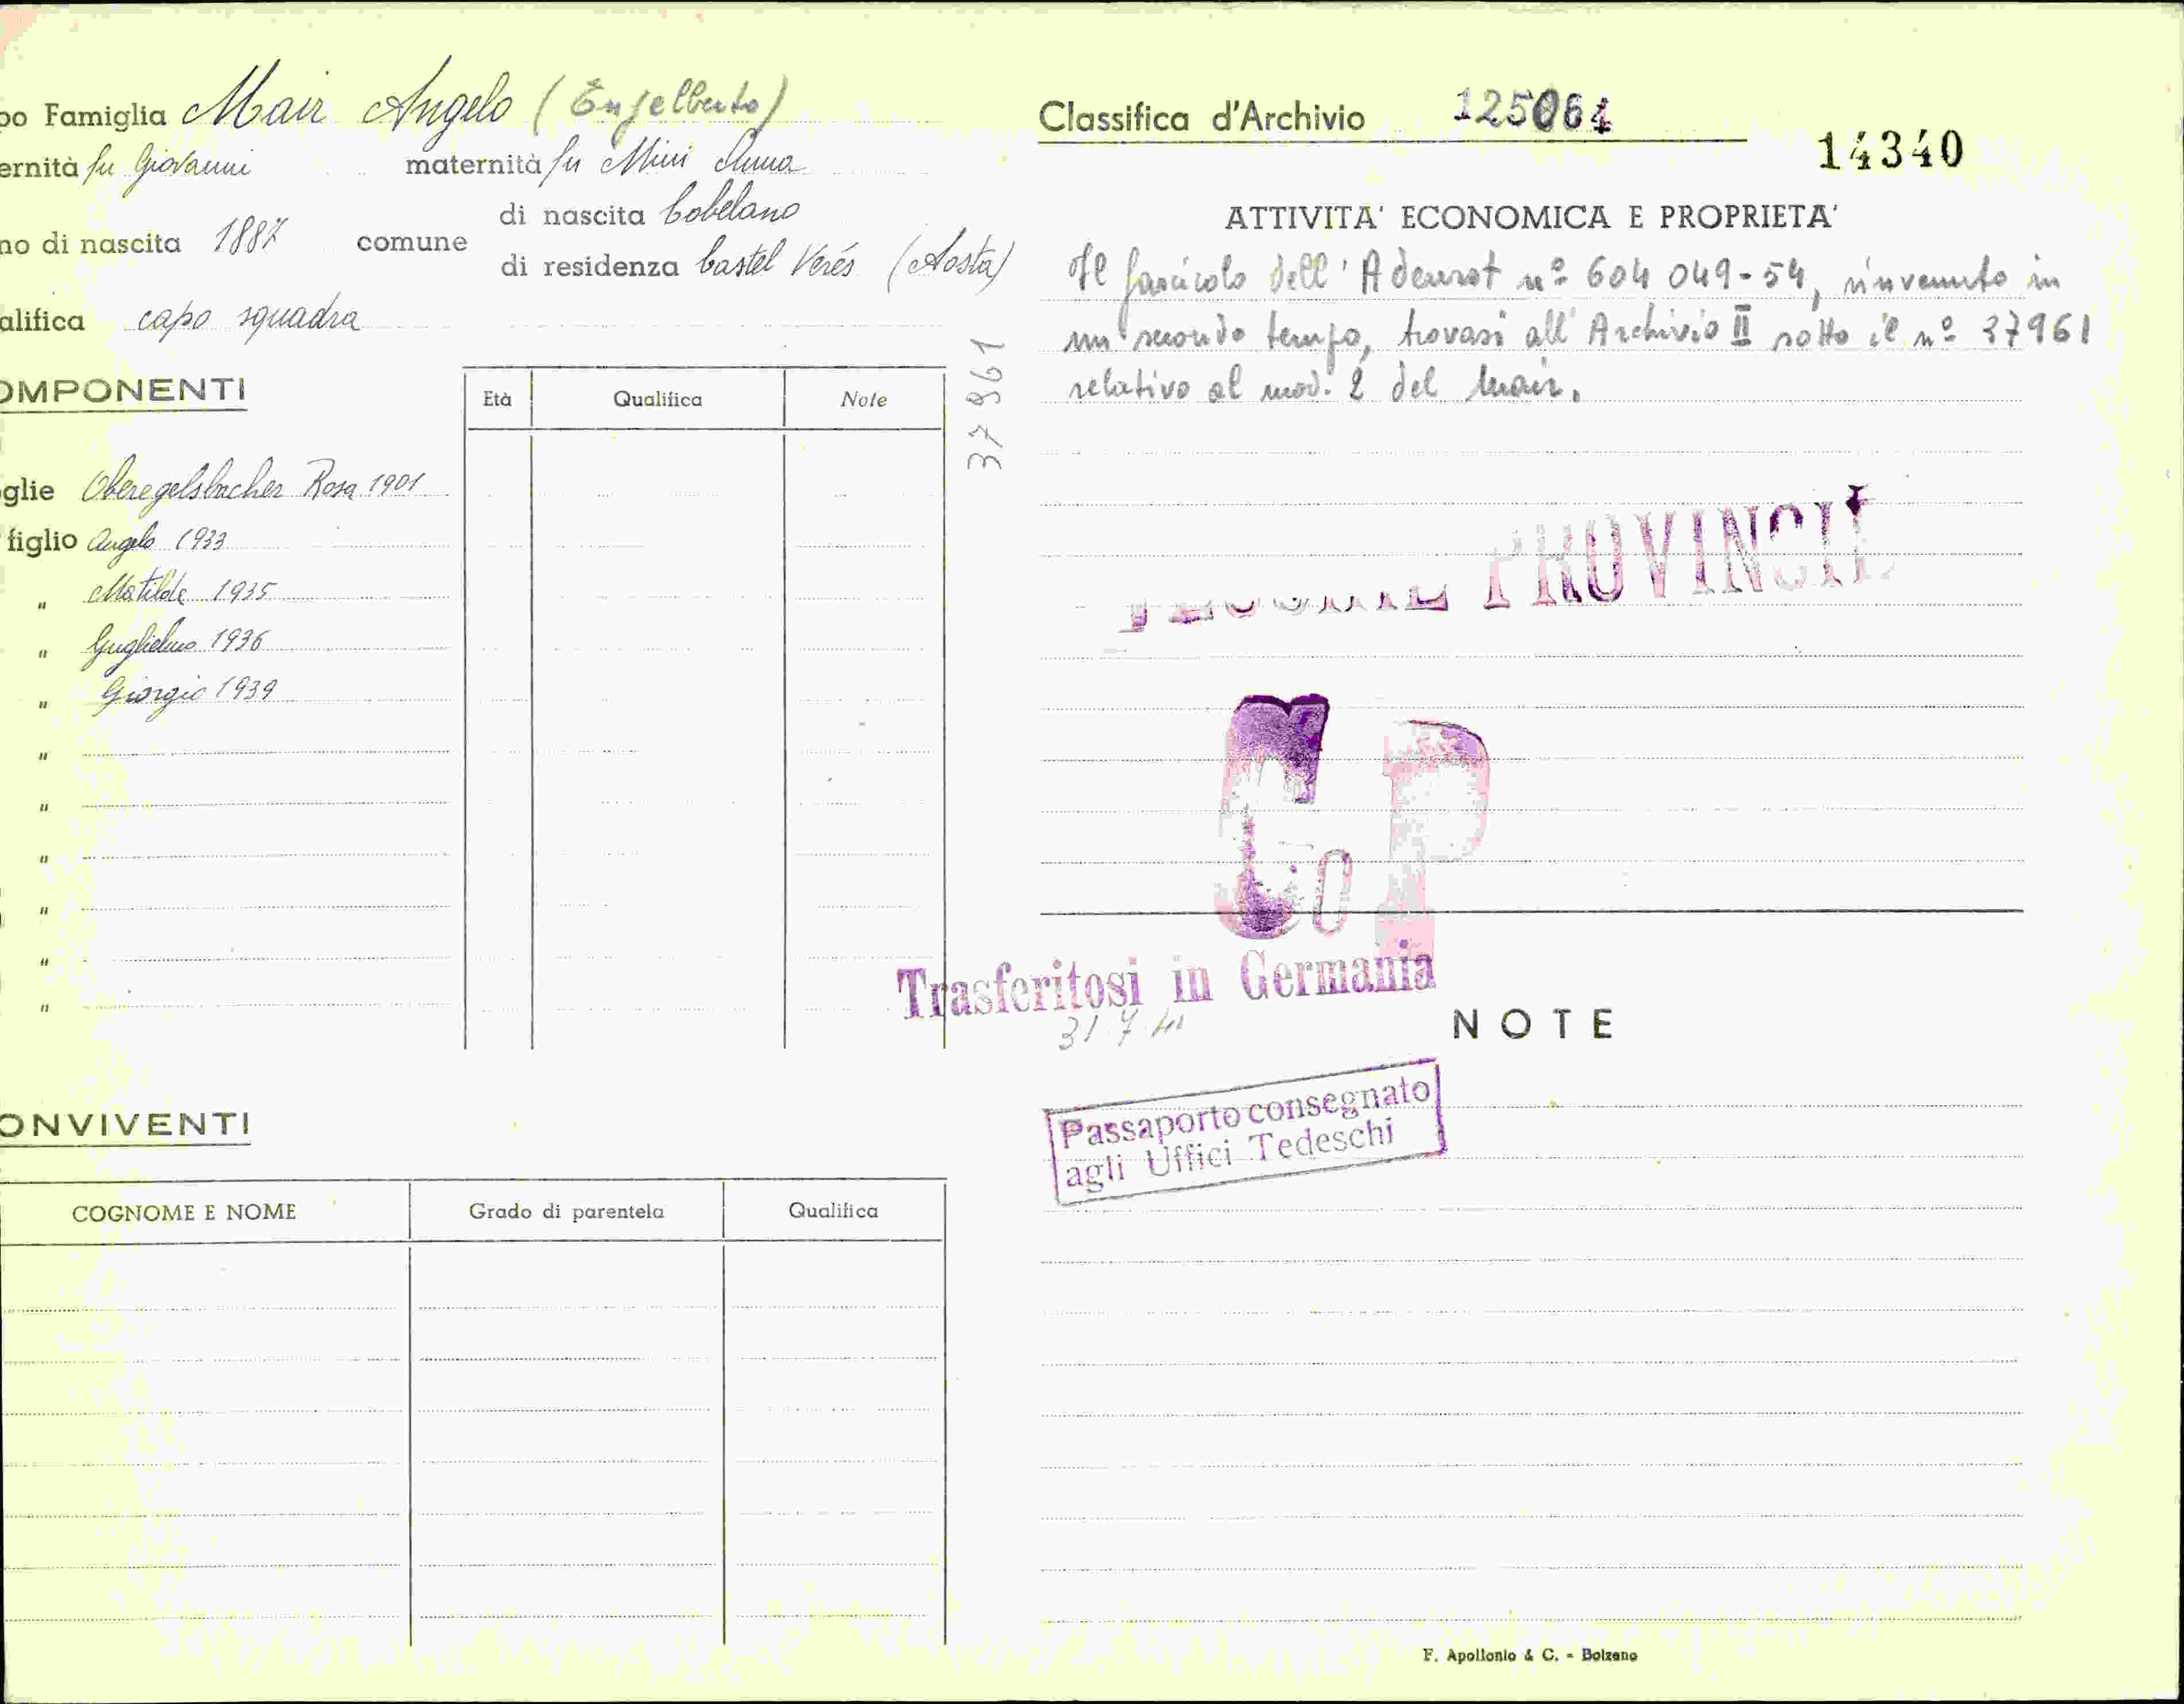 po Famiglia Mair Angelo (Engelberto)
ernità fu Giovanni maternità fu Mini Anna
no di nascita 1887 comune di nascita Cobelano
di residenza Castel Verés (Aosta)
alifica capo squadra
OMPONENTI
Età Qualifica Note
glie Oberegelsbacher Rosa 1901
figlio Angelo 1933
" Matilde 1935
" Guglielmo 1936
" Giorgio 1939
"
"
"
"
"
"
ONVIVENTI
COGNOME E NOME Grado di parentela Qualifica
37961
Classifica d'Archivio 125064
14340
ATTIVITA' ECONOMICA E PROPRIETA'
Il fascicolo dell'Adeurst nº 604 049-54, rinvenuto in
un secondo tempo, trovasi all'Archivio II sotto il nº 37961
relativo al mod. 2 del Mair.
PROVINCIE
Co P
Trasferitosi in Germania
31.7.
NOTE
Passaporto consegnato
agli Uffici Tedeschi
F. Apollonio & C. - Bolzano